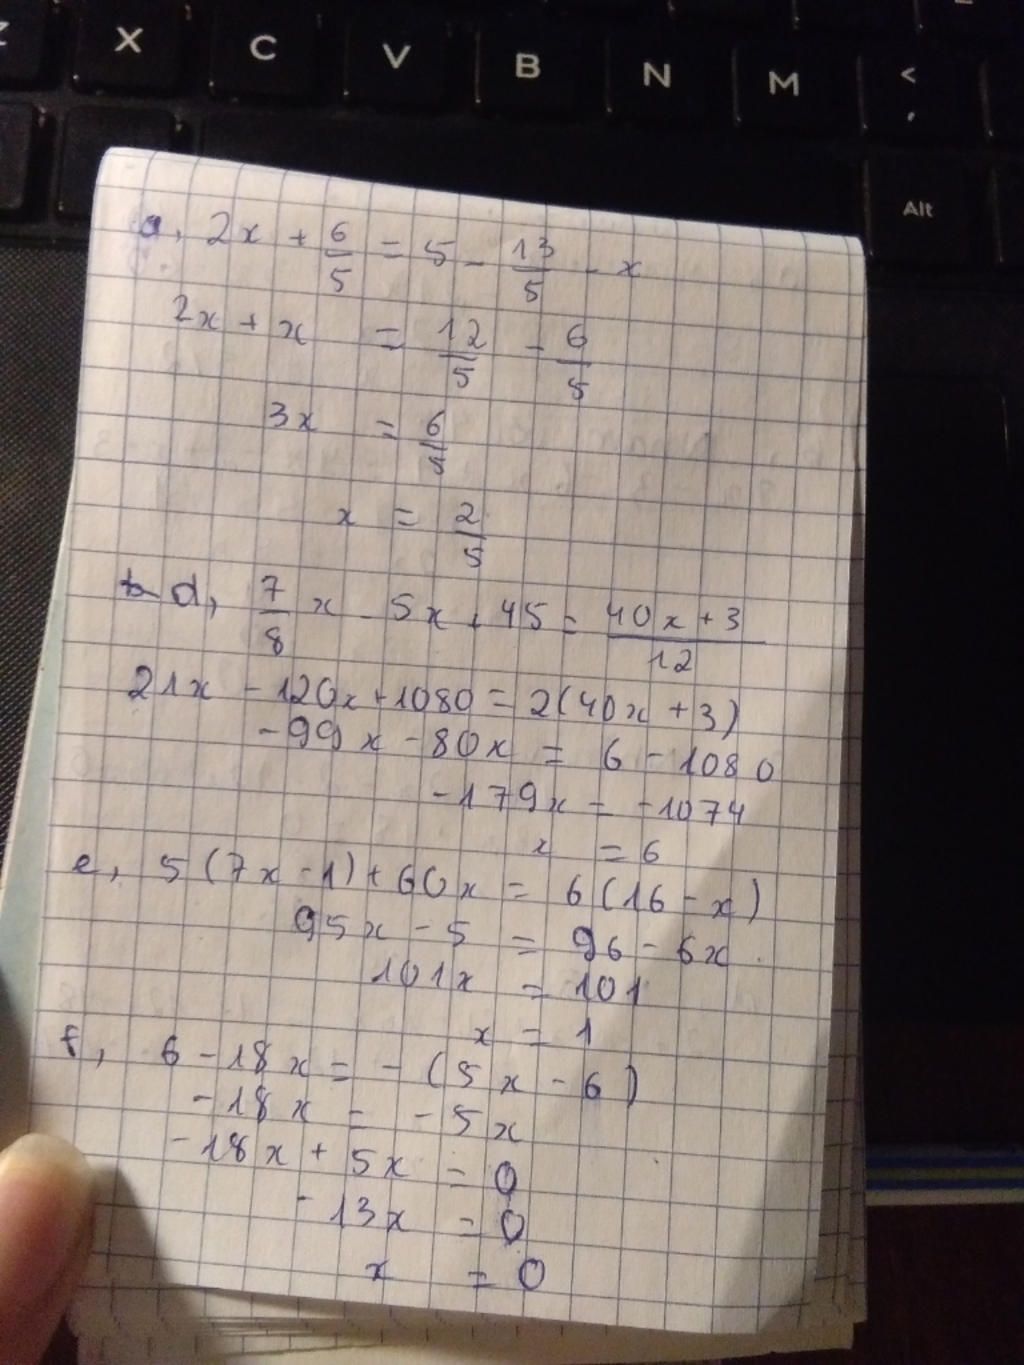 Z X C V B N M < ,
Alt
a, 2x + 6/5 = 5 - 13/5 - x
2x + x = 12/5 - 6/5
3x = 6/5
x = 2/5
d, 7/8 x - 5x + 45 = 40x + 3/12
21x - 120x + 1080 = 2(40x + 3)
-99x - 80x = 6 - 1080
-179x = -1074
x = 6
e, 5(7x - 1) + 60x = 6(16 - x)
95x - 5 = 96 - 6x
101x = 101
x = 1
f, 6 - 18x = -(5x - 6)
-18x = -5x
-18x + 5x = 0
-13x = 0
x = 0